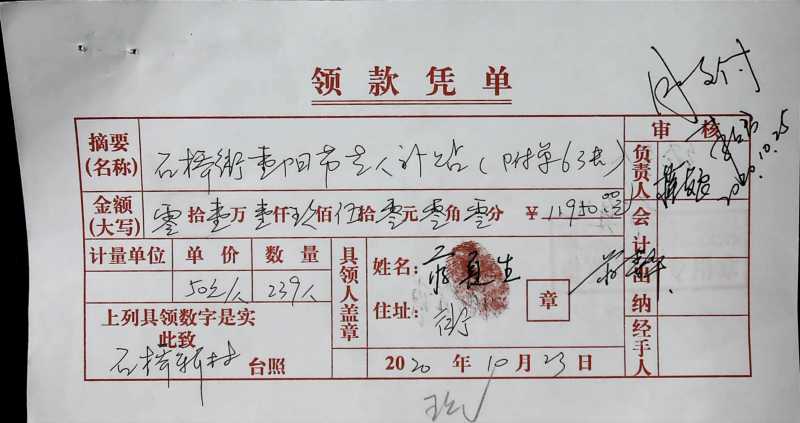 领款凭单
支付
审核
2020.10.25
摘要(名称) 石桥街重阳节老人补贴(附单63张) 负责人
金额(大写) 零拾壹万壹仟玖佰伍拾零元零角零分 ¥11950.00元 会计
计量单位 单价 数量 具领人盖章 姓名: 生 章 出纳
50元/人 239人 住址: 街
上列具领数字是实 经手人
此致
石桥新村 台照 2020年10月23日